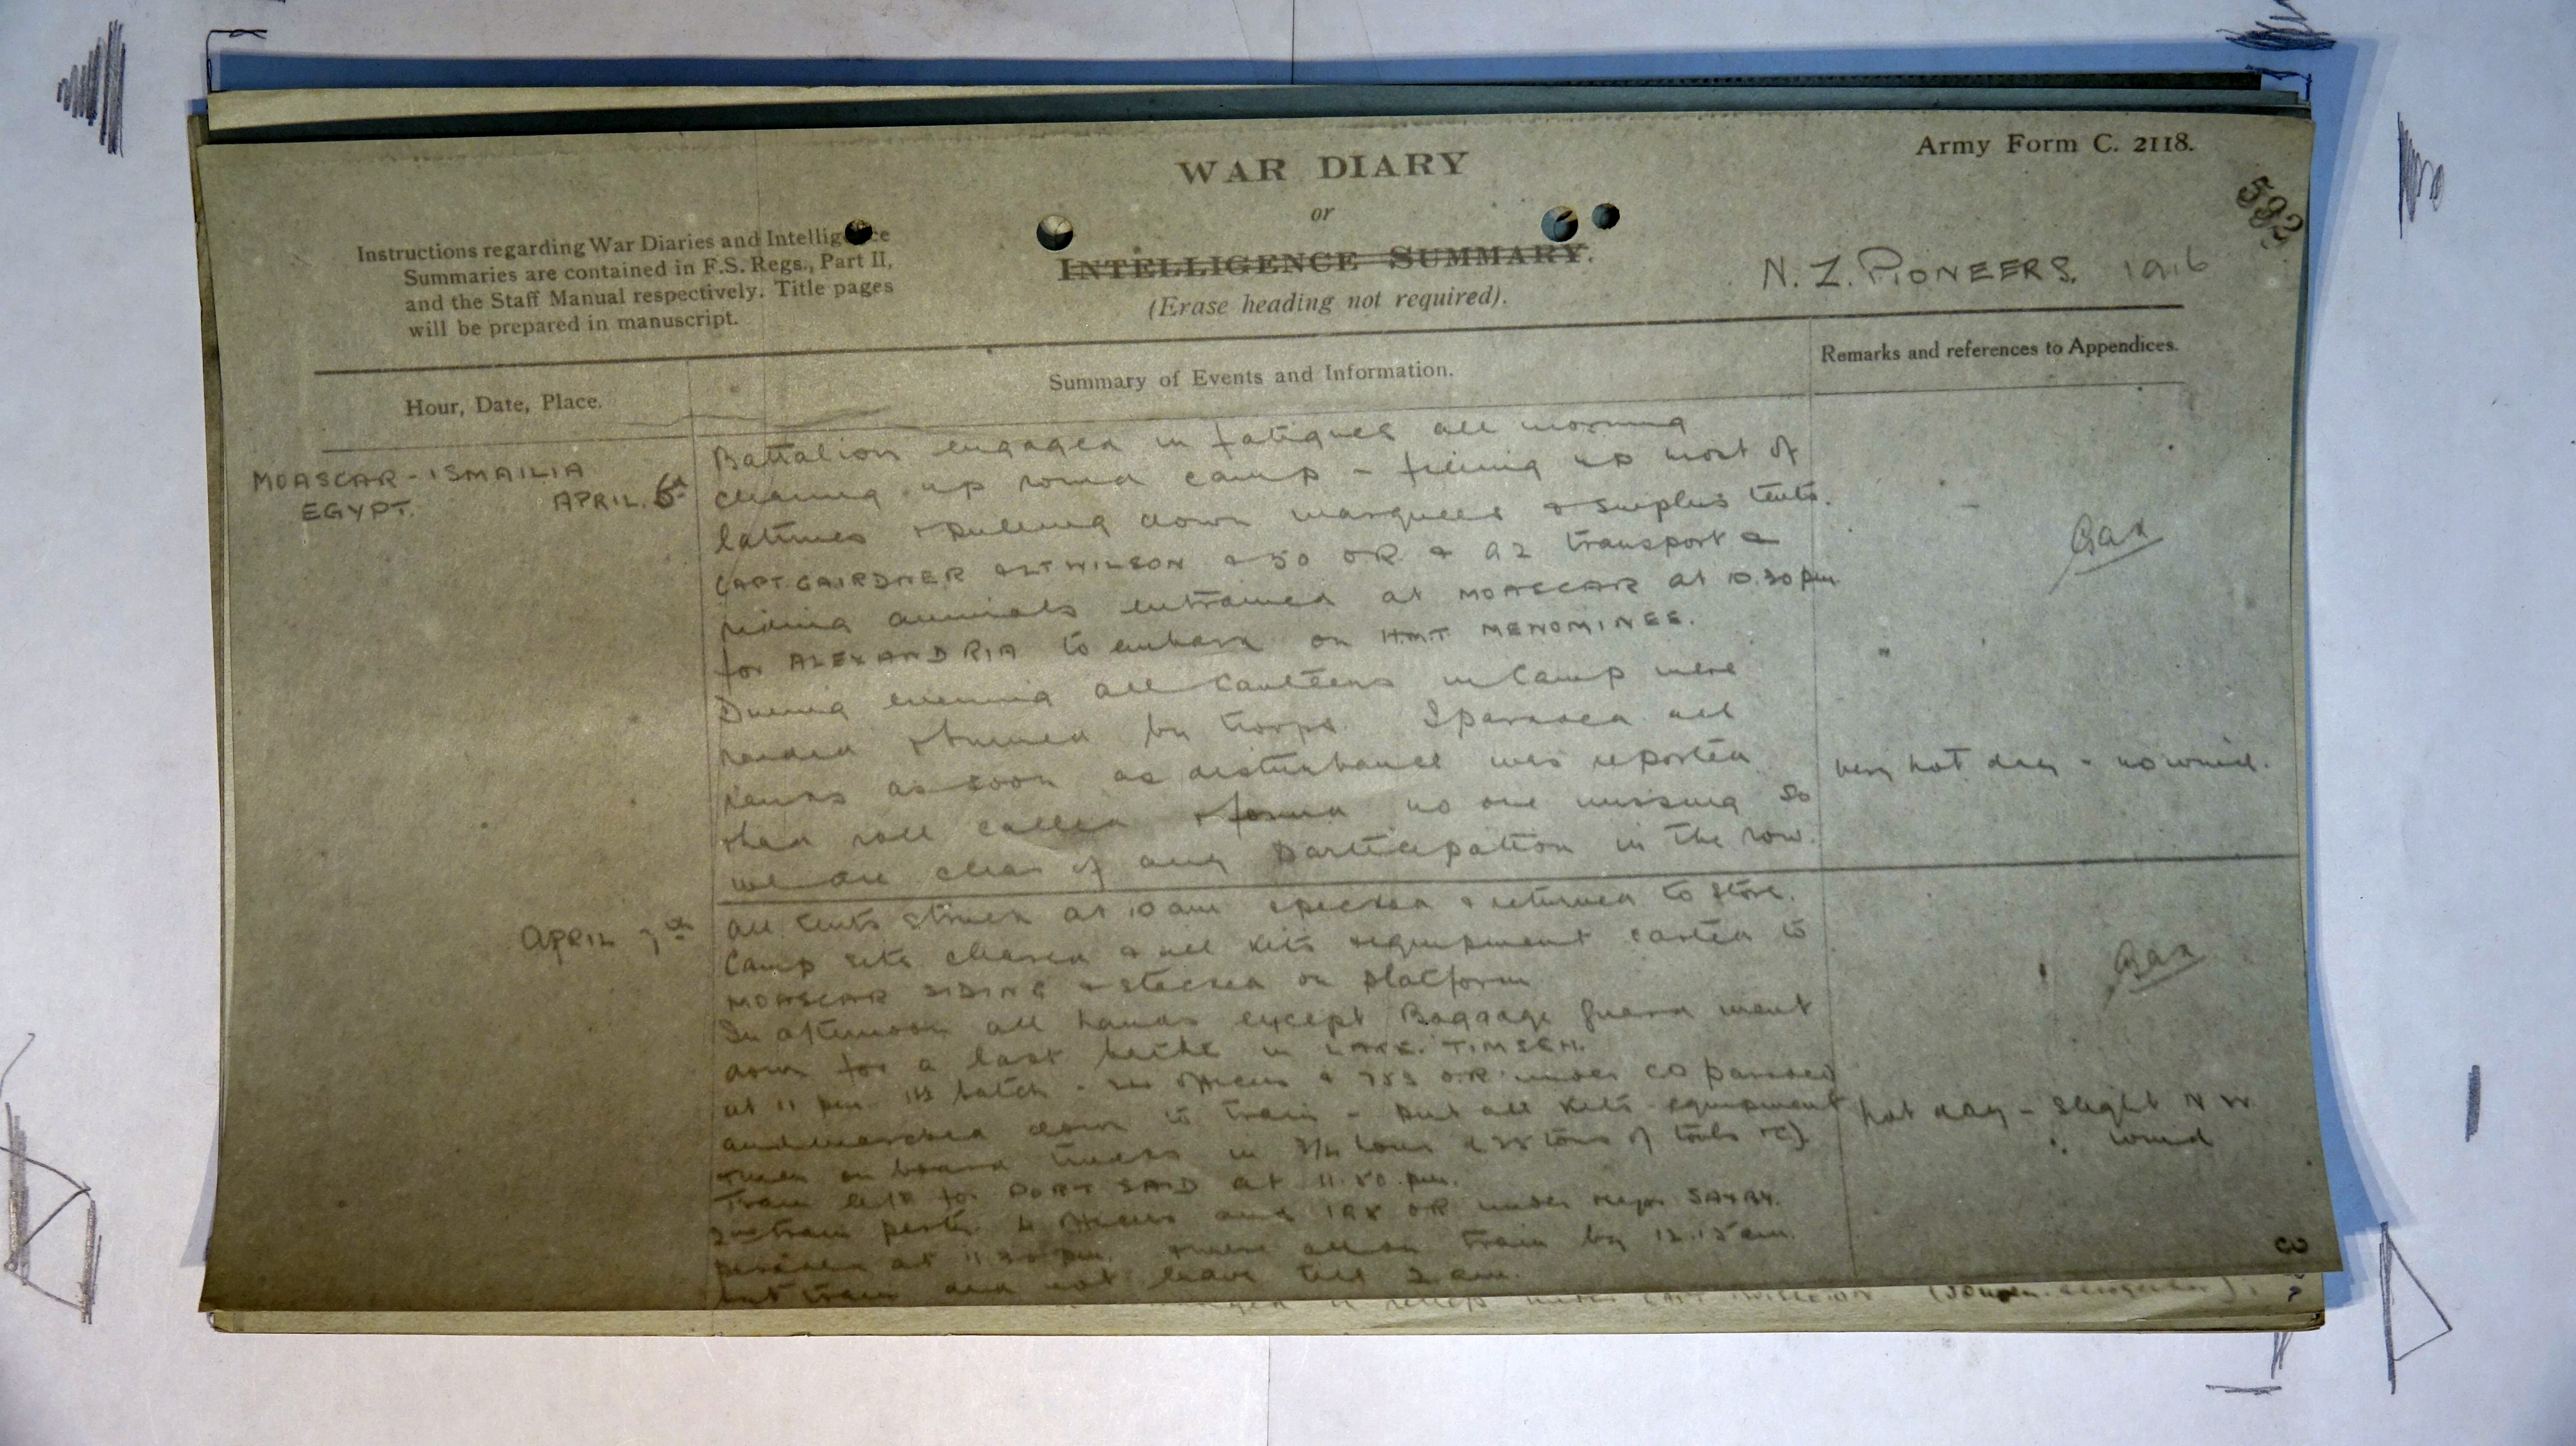 Army Form C. 2118.
WAR DIARY
or
INTELLIGENCE SUMMARY.
(Erase heading not required).
592
Instructions regarding War Diaries and Intelligence
Summaries are contained in F.S. Regs., Part II,
and the Staff Manual respectively. Title pages
will be prepared in manuscript.
N. Z. PIONEERS. 1916
Hour, Date, Place.
Summary of Events and Information.
Remarks and references to Appendices.
MOASCAR - ISMAILIA
EGYPT. APRIL. 6th
Battalion engaged in fatigues all morning
cleaning up round camp - filling up most of
latrines & pulling down marquees & surplus tents.
CAPT. GAIRDNER & LT WILSON & 50 OR & 92 transport &
riding animals entrained at MOASCAR at 10.30 pm
for ALEXANDRIA to embark on HMT MENOMINEE.
During evening all canteens in Camp were
raided & burned by troops. I paraded all
hands as soon as disturbance was reported
& had roll called & found no one missing so
we are clear of any participation in the row.
very hot day - no wind.
APRIL 7th
All tents struck at 10 am & returned to store.
Camp site cleaned & all kits & equipment carted to
MOASCAR SIDING & stacked on platform
In afternoon all hands except Baggage guard went
down for a last bathe in LAKE TIMSEH.
at 11 pm 1st batch - officers & 783 O.R. under CO paraded
and marched down to train - put all kits equipment
on board trucks in 3/4 hour (& 28 tons of tools etc)
Train left for PORT SAID at 11.50 pm.
2nd train party 4 officers and 198 OR under Major SAXBY.
paraded at 11.30 pm. & were all on train by 12.15 am.
but train did not leave till 2 am.
hot day - slight N W
wind
3